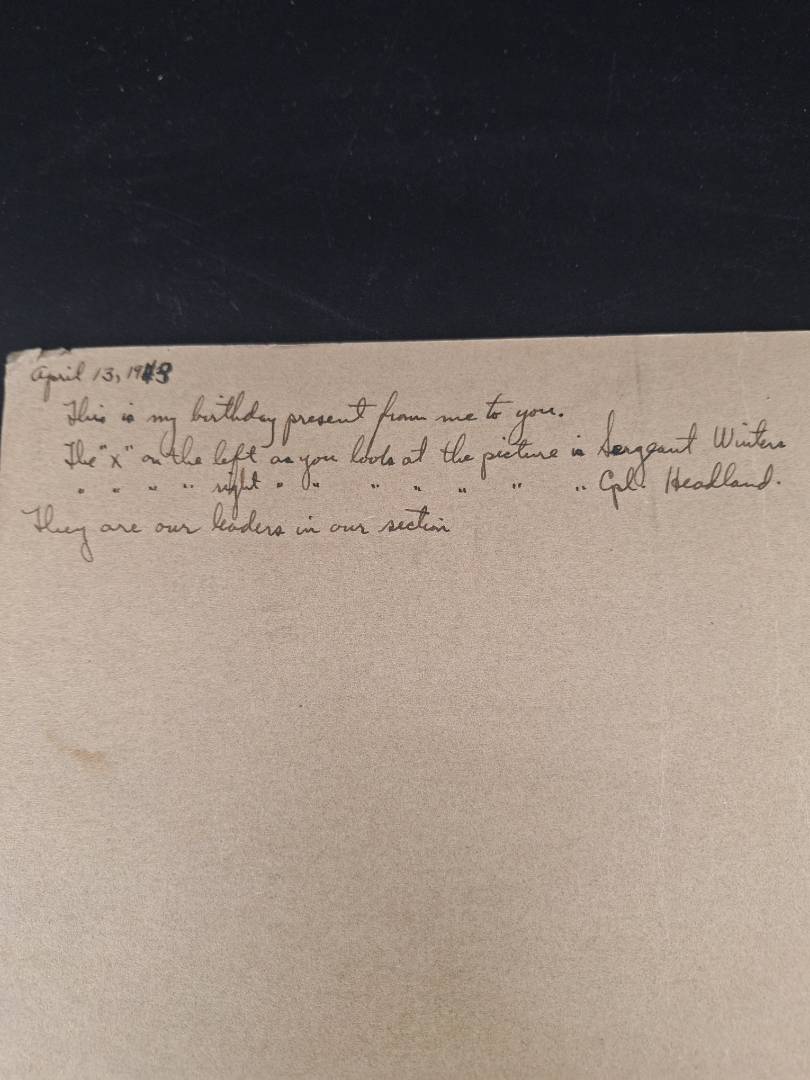 April 13, 1943
This is my birthday present from me to you.
The "x" on the left as you look at the picture is Sergeant Winters
" " " " right " " " " " " " Cpl. Headland.
They are our leaders in our section